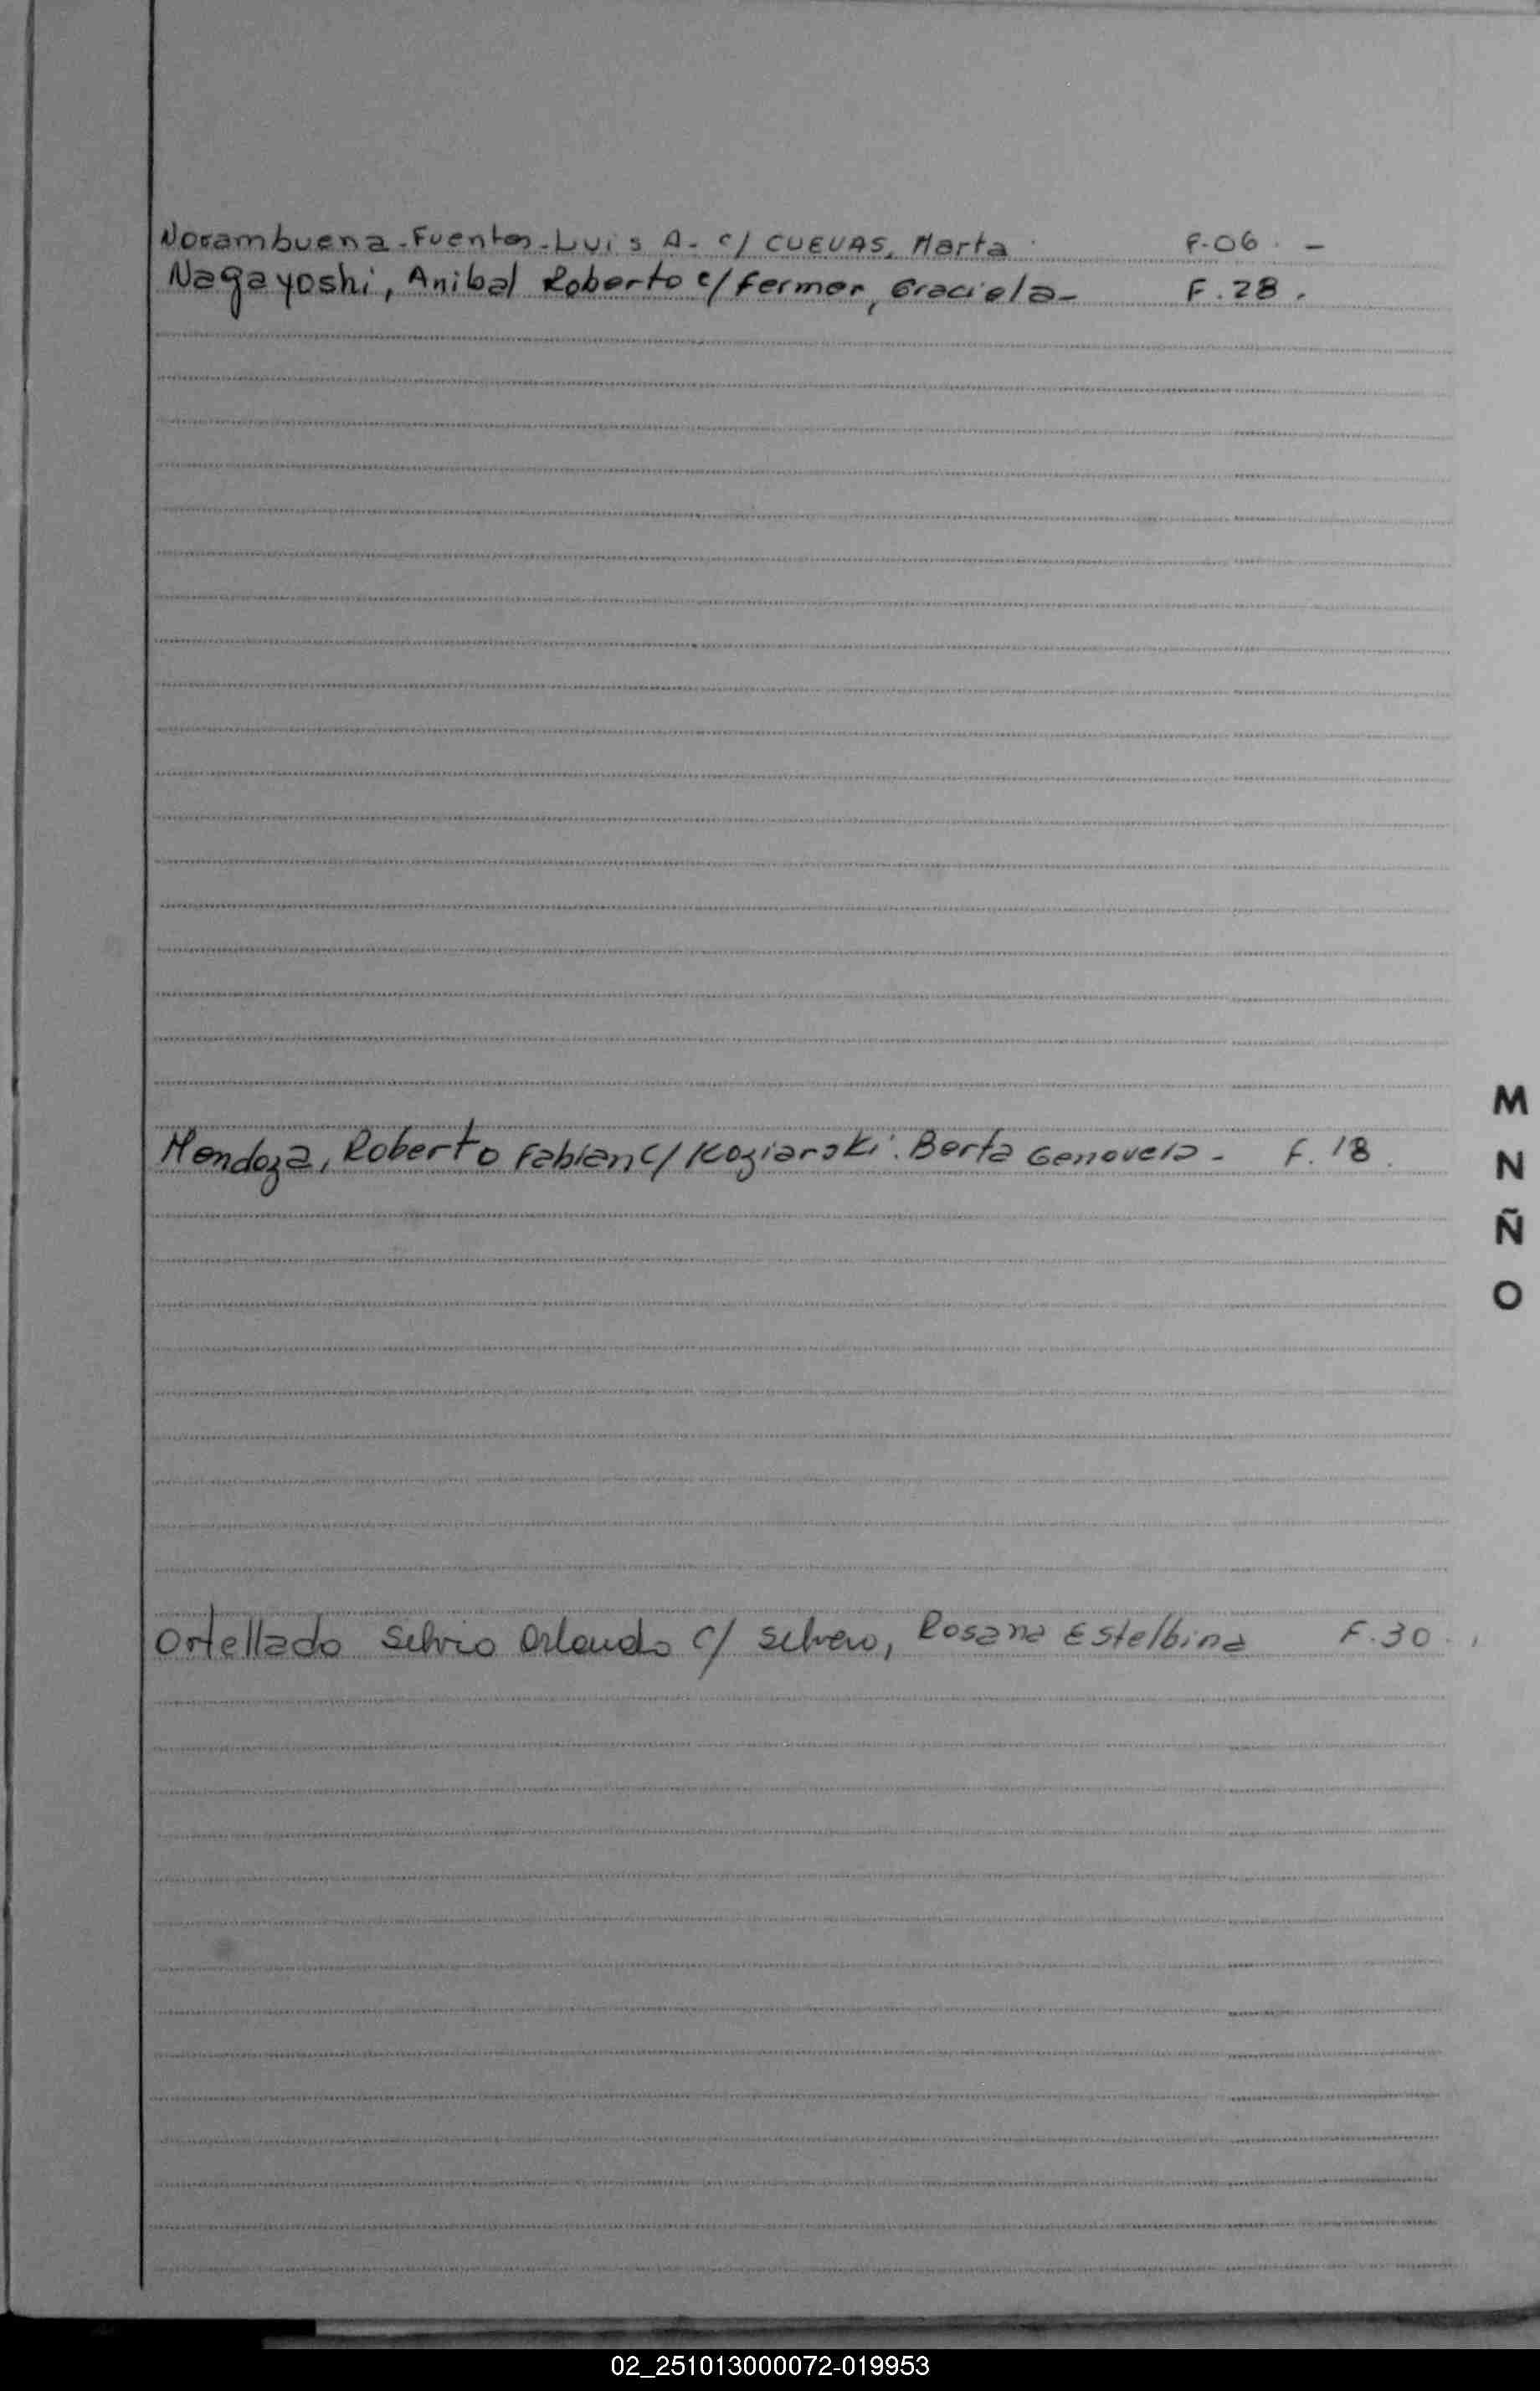 Norambuena-Fuentes-Luis A- c/ CUEVAS, Marta F-06. -
Nagayoshi, Anibal Roberto c/ Fermor, Graciela- F.28.
M
Mendoza, Roberto Fabian c/ Koziarski. Berta Genovera - F.18.
N
Ñ
O
Ortellado Silvio Orlando c/ Silvero, Rosana Estelbina F.30.
02_251013000072-019953